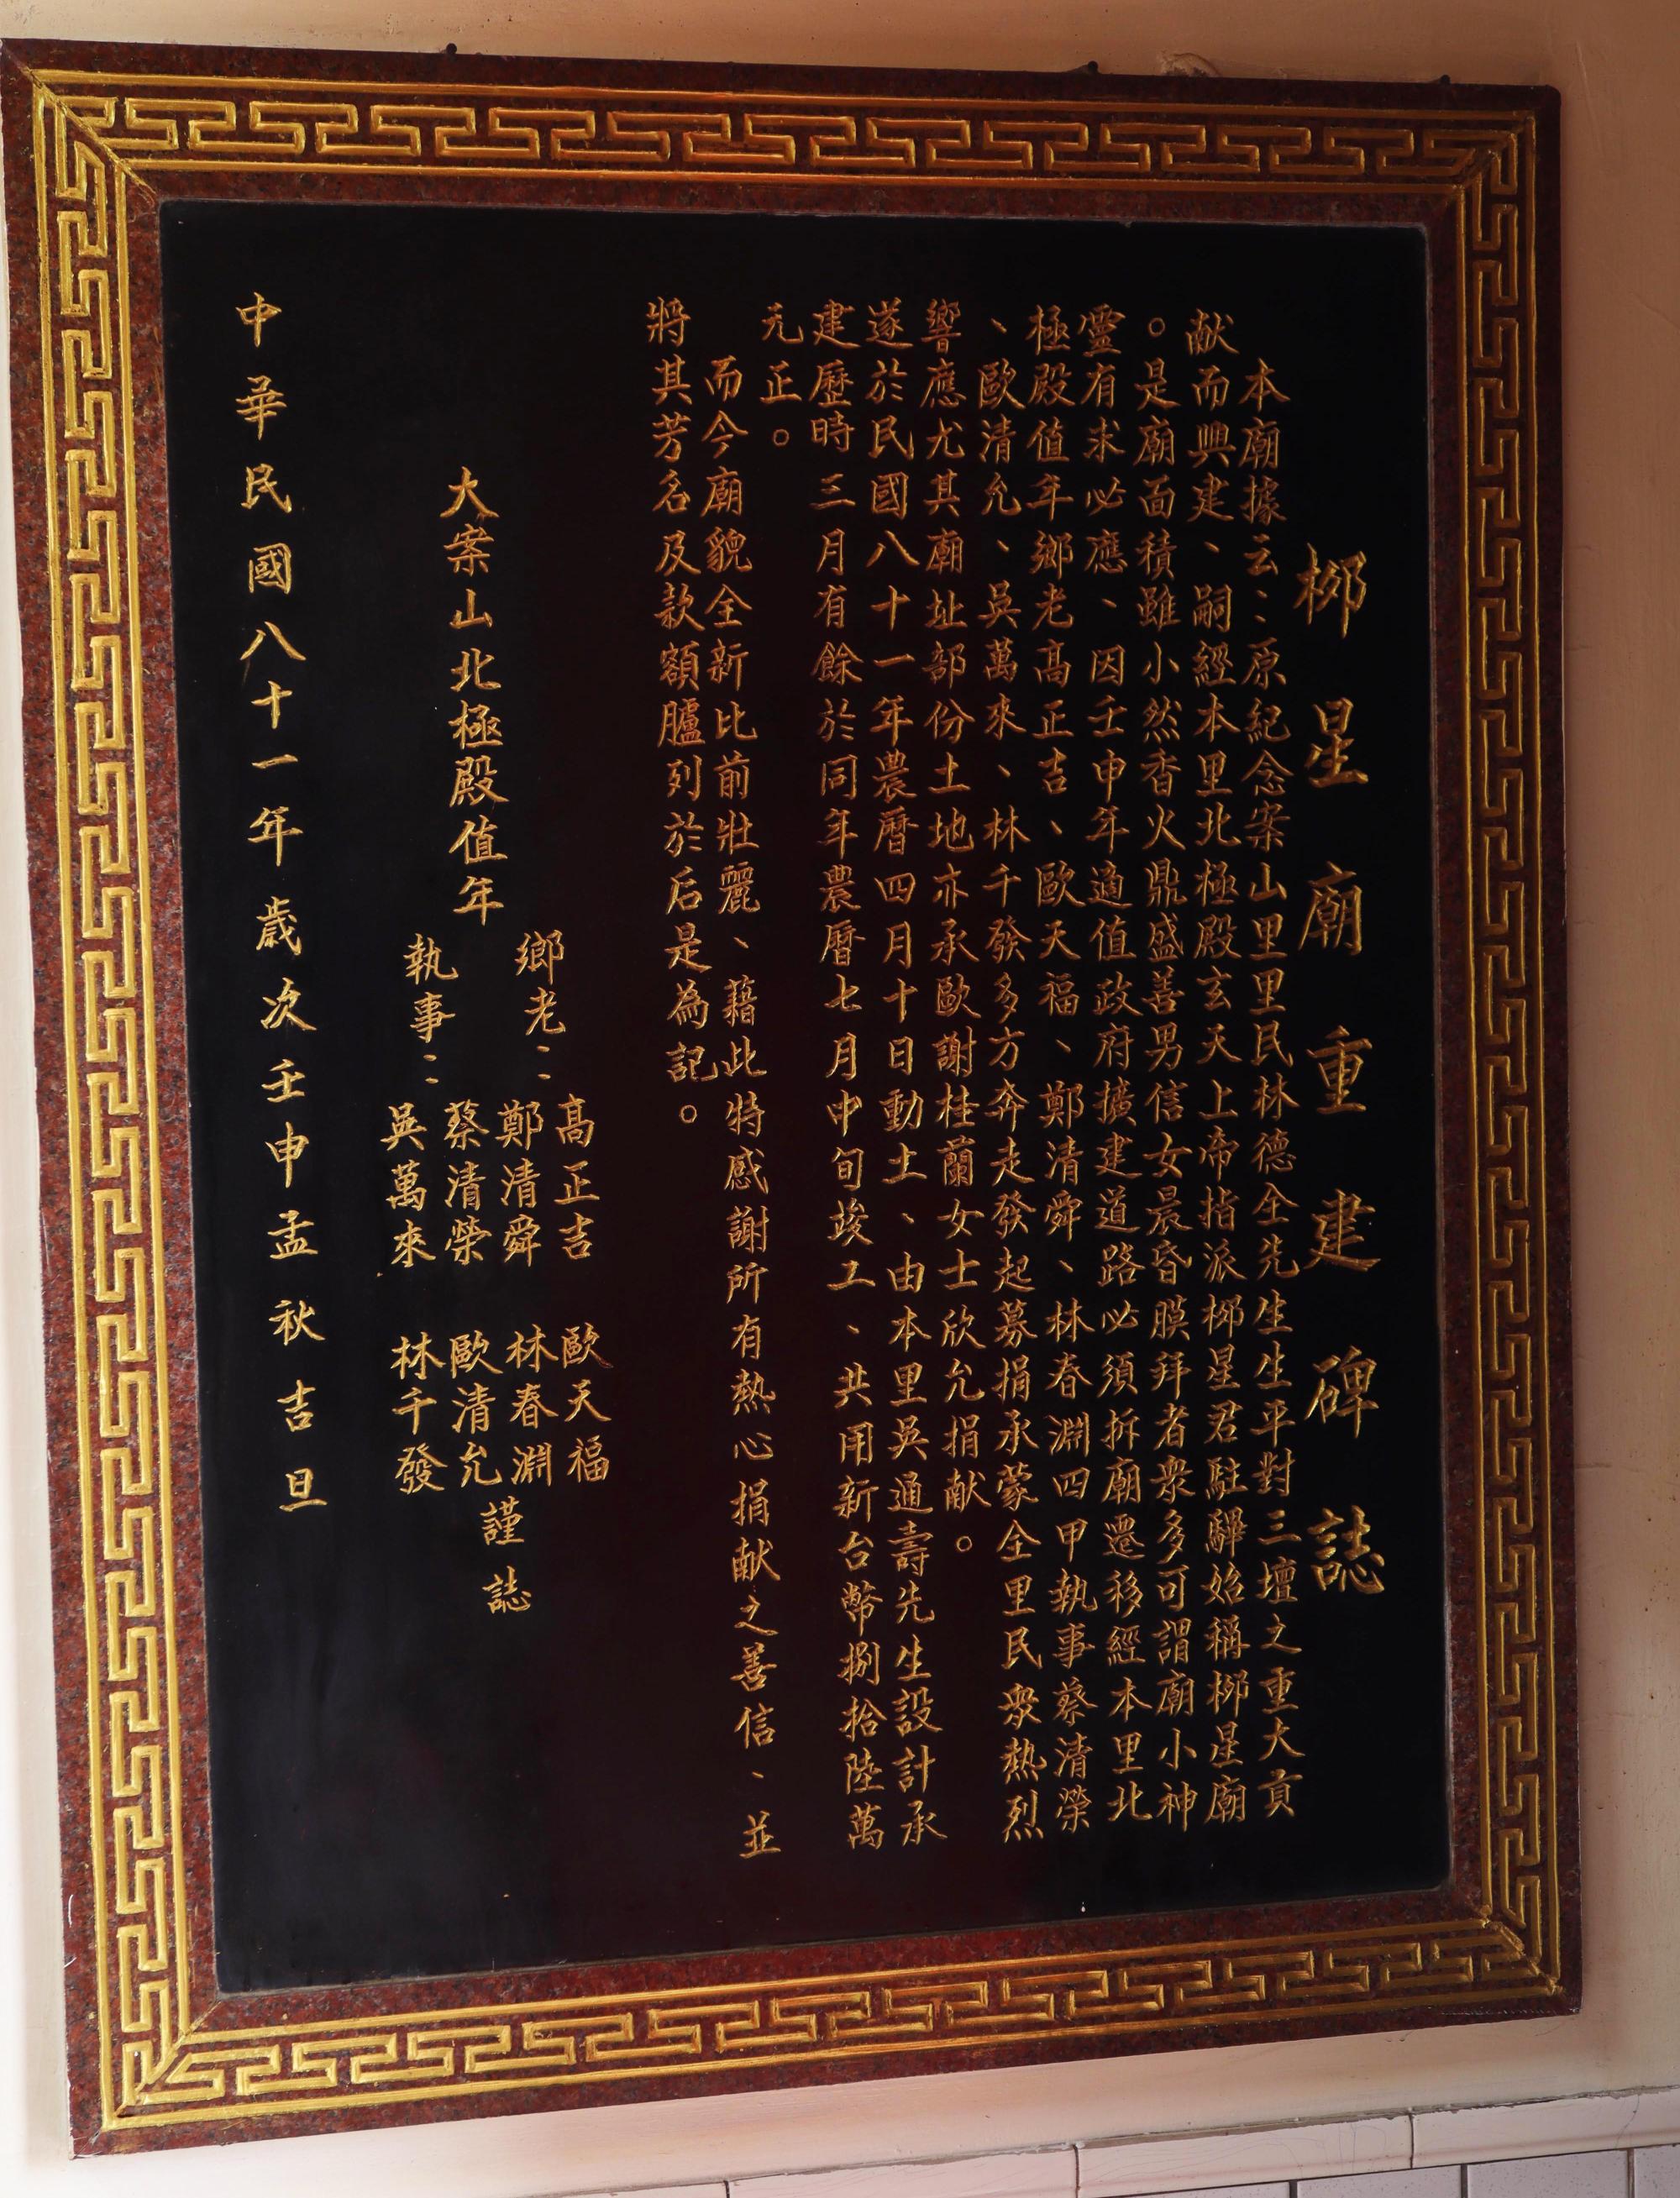 柳星廟重建碑誌
本廟據云：原紀念案山里里民林德全先生生平對三壇之重大貢
献而興建、嗣經本里北極殿玄天上帝指派柳星君駐驆始稱柳星廟
。是廟面積雖小然香火鼎盛善男信女晨昏膜拜者衆多可謂廟小神
靈有求必應、因壬申年適值政府擴建道路必須拆廟遷移經本里北
極殿值年鄉老高正吉、歐天福、鄭清舜、林春淵四甲執事蔡清榮
、歐清允、吳萬來、林千發多方奔走發起募捐承蒙全里民衆熱烈
響應尤其廟址部份土地亦承歐謝桂蘭女士欣允捐献。
遂於民國八十一年農曆四月十日動土、由本里吳通壽先生設計承
建歷時三月有餘於同年農曆七月中旬竣工、共用新台幣捌拾陸萬
元正。
而今廟貌全新比前壯麗、藉此特感謝所有熱心捐献之善信、並
將其芳名及款額臚列於后是為記。
大案山北極殿值年
鄉老：高正吉 歐天福
鄭清舜 林春淵
執事：蔡清榮 歐清允
吳萬來 林千發
謹誌
中華民國八十一年歲次壬申孟秋吉旦